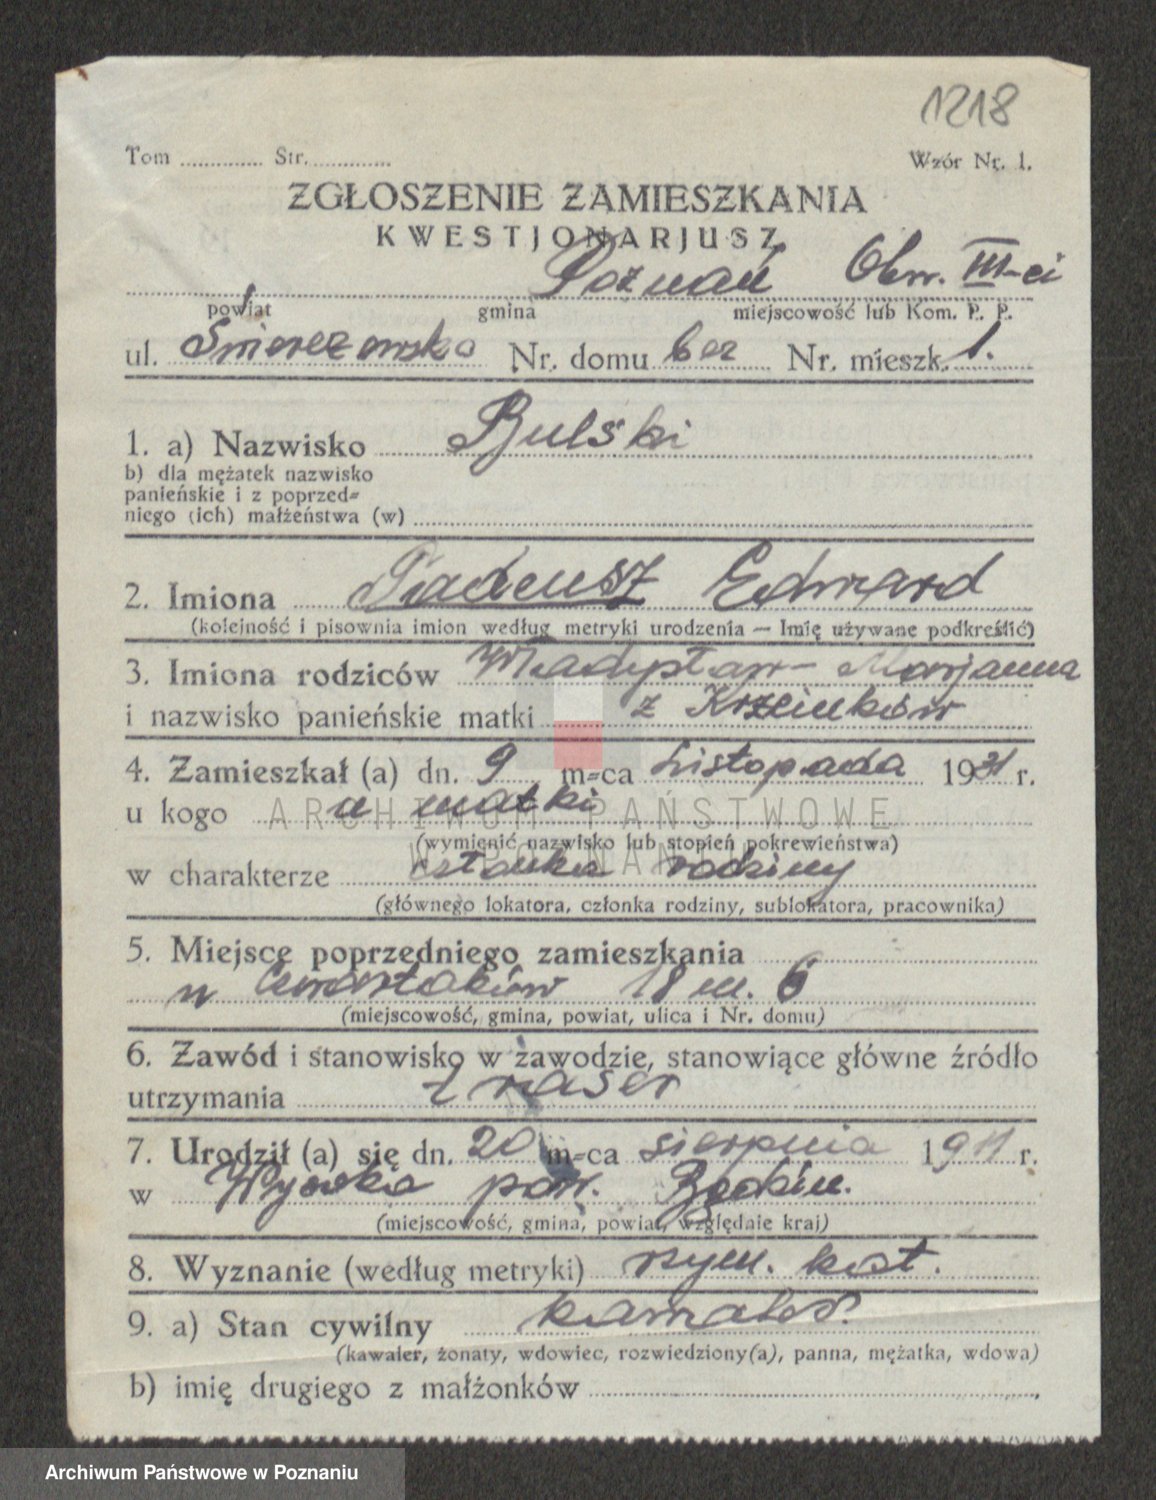 1218
Tom ............ Str. ............
Wzór Nr. 1.
ZGŁOSZENIE ZAMIESZKANIA
KWESTJONARJUSZ
Poznań Obw. III-ci
powiat gmina miejscowość lub Kom. P. P.
ul. Nr. domu Nr. mieszk. 1.
1. a) Nazwisko Bulski
b) dla mężatek nazwisko
panieńskie i z poprzed=
niego (ich) małżeństwa (w)
2. Imiona Tadeusz Edward
(kolejność i pisownia imion według metryki urodzenia — Imię używane podkreślić)
3. Imiona rodziców Władysław - Marjanna
i nazwisko panieńskie matki z
4. Zamieszkał (a) dn. 9 m=ca Listopada 1931 r.
u kogo u matki
ARCHIWUM PAŃSTWOWE
(wymienić nazwisko lub stopień pokrewieństwa)
W POZNANIU
w charakterze członka rodziny
(głównego lokatora, członka rodziny, sublokatora, pracownika)
5. Miejsce poprzedniego zamieszkania
18 m. 6
(miejscowość, gmina, powiat, ulica i Nr. domu)
6. Zawód i stanowisko w zawodzie, stanowiące główne źródło
utrzymania
7. Urodził (a) się dn. 20 m=ca sierpnia 1911 r.
w Wysoka pow.
(miejscowość, gmina, powiat, względnie kraj)
8. Wyznanie (według metryki) rzym. kat.
9. a) Stan cywilny kawaler.
(kawaler, żonaty, wdowiec, rozwiedziony(a), panna, mężatka, wdowa)
b) imię drugiego z małżonków
Archiwum Państwowe w Poznaniu